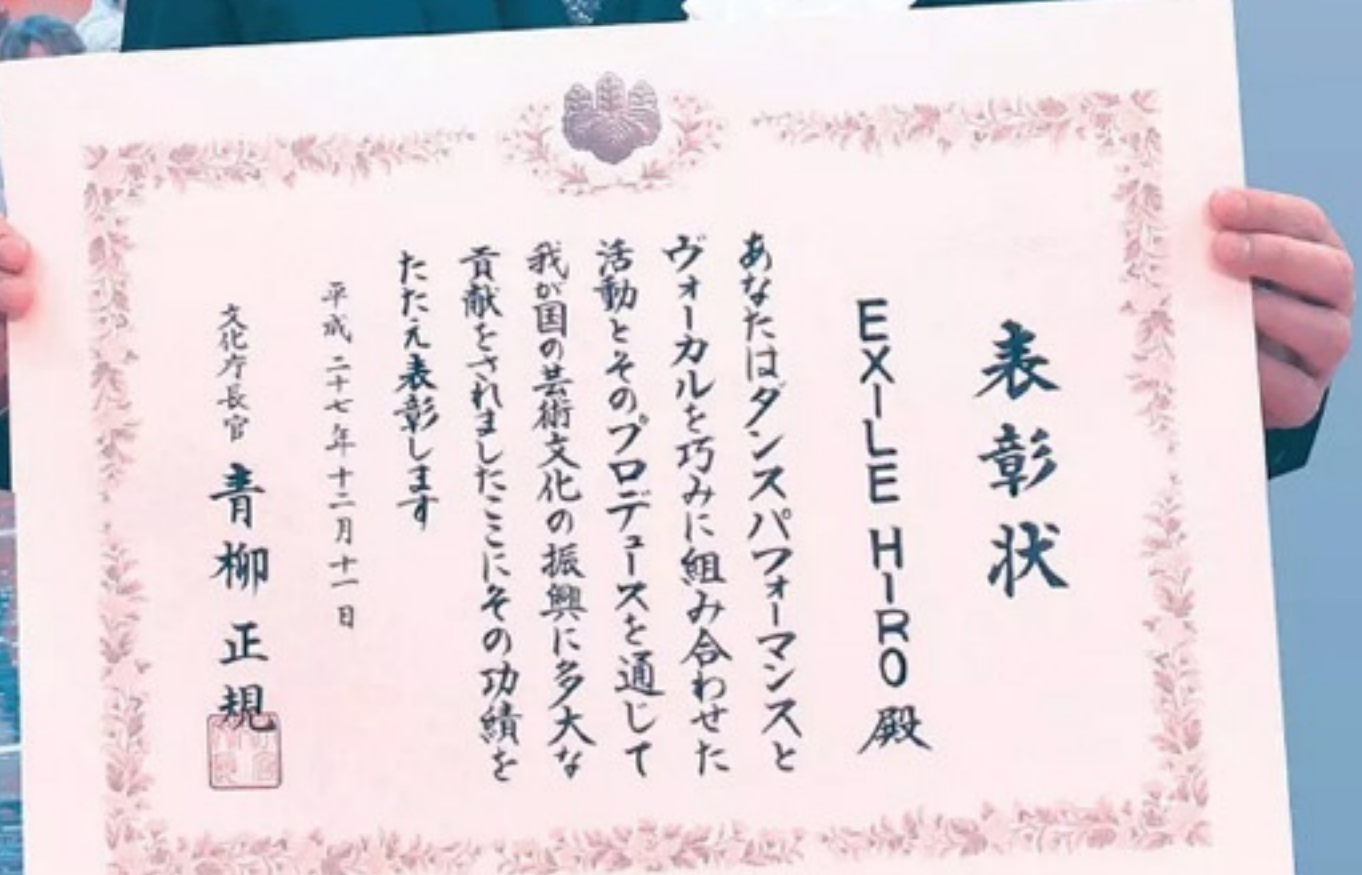 表彰状
EXILE HIRO 殿
あなたはダンスパフォーマンスと
ヴォーカルを巧みに組み合わせた
活動とそのプロデュースを通じて
我が国の芸術文化の振興に多大な
貢献をされましたここにその功績を
たたえ表彰します
平成二十七年十二月十一日
文化庁長官 青柳正規